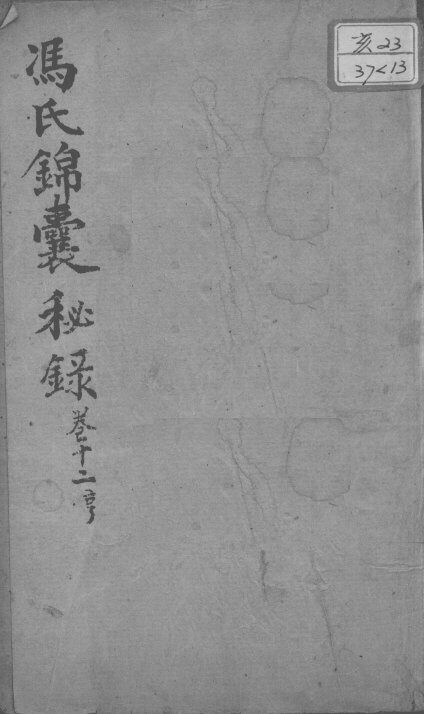 馮氏錦囊秘録
卷十二亨
亥23
37<13